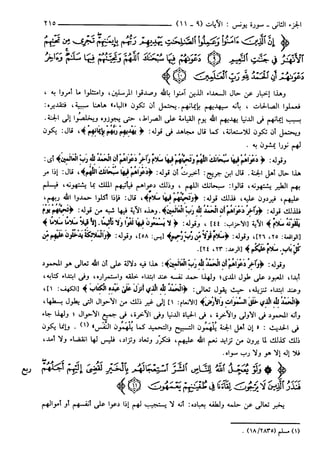 الجزء الثانى - سورة يونس : الآيات ( ٩ - ١١ ) ٢١٥
﴿ إِنَّ الَّذِينَ آمَنُوا وَعَمِلُوا الصَّالِحَاتِ يَهْدِيهِمْ رَبُّهُم بِإِيمَانِهِمْ تَجْرِي مِن
تَحْتِهِمُ الْأَنْهَارُ فِي جَنَّاتِ النَّعِيمِ ٩ دَعْوَاهُمْ فِيهَا سُبْحَانَكَ اللَّهُمَّ وَتَحِيَّتُهُمْ فِيهَا سَلَامٌ وَآخِرُ
دَعْوَاهُمْ أَنِ الْحَمْدُ لِلَّهِ رَبِّ الْعَالَمِينَ ١٠ ﴾
وهذا إخبار عن حال السعداء الذين آمنوا بالله وصدقوا المرسلين ، وامتثلوا ما أمروا به ،
فعملوا الصالحات ، بأنه سيهديهم بإيمانهم. يحتمل أن تكون «الباء» هاهنا سببية، فتقديره:
بسبب إيمانهم فى الدنيا يهديهم الله يوم القيامة على الصراط، حتى يجوزوه ويخلصوا إلى الجنة.
ويحتمل أن تكون للاستعانة، كما قال مجاهد فى قوله: ﴿ يَهْدِيهِمْ رَبُّهُم بِإِيمَانِهِمْ ﴾، قال: يكون
لهم نورا يمشون به .
وقوله: ﴿ دَعْوَاهُمْ فِيهَا سُبْحَانَكَ اللَّهُمَّ وَتَحِيَّتُهُمْ فِيهَا سَلَامٌ وَآخِرُ دَعْوَاهُمْ أَنِ الْحَمْدُ لِلَّهِ رَبِّ الْعَالَمِينَ ﴾ أى:
هذا حال أهل الجنة. قال ابن جريج: أخبرت أن قوله: ﴿ دَعْوَاهُمْ فِيهَا سُبْحَانَكَ اللَّهُمَّ ﴾، قال: إذا مر
بهم الطير يشتهونه، قالوا: سبحانك اللهم ، وذلك دعواهم فيأتيهم الملك بما يشتهونه، فيسلم
عليهم، فيردون عليه، فذلك قوله: ﴿ وَتَحِيَّتُهُمْ فِيهَا سَلَامٌ ﴾، قال: فإذا أكلوا حمدوا الله ربهم،
فذلك قوله: ﴿ وَآخِرُ دَعْوَاهُمْ أَنِ الْحَمْدُ لِلَّهِ رَبِّ الْعَالَمِينَ ﴾. وهذه الآية فيها شبه من قوله: ﴿ تَحِيَّتُهُمْ يَوْمَ
يَلْقَوْنَهُ سَلَامٌ ﴾ الآية [الأحزاب: ٤٤] ، وقوله: ﴿ لَا يَسْمَعُونَ فِيهَا لَغْوًا وَلَا تَأْثِيمًا. إِلَّا قِيلًا سَلَامًا سَلَامًا ﴾
[الواقعة: ٢٥، ٢٦]، وقوله: ﴿ سَلَامٌ قَوْلًا مِّن رَّبٍّ رَّحِيمٍ ﴾ [يس: ٥٨]، وقوله: ﴿ وَالْمَلَائِكَةُ يَدْخُلُونَ عَلَيْهِم مِّن
كُلِّ بَابٍ. سَلَامٌ عَلَيْكُم ﴾ [الرعد: ٢٣، ٢٤].
وقوله: ﴿ وَآخِرُ دَعْوَاهُمْ أَنِ الْحَمْدُ لِلَّهِ رَبِّ الْعَالَمِينَ ﴾: هذا فيه دلالة على أن الله تعالى هو المحمود
أبدا، المعبود على طول المدى؛ ولهذا حمد نفسه عند ابتداء خلقه واستمراره، وفى ابتداء كتابه،
وعند ابتداء تنزيله، حيث يقول تعالى: ﴿ الْحَمْدُ لِلَّهِ الَّذِي أَنزَلَ عَلَىٰ عَبْدِهِ الْكِتَابَ ﴾ [الكهف: ١]،
﴿ الْحَمْدُ لِلَّهِ الَّذِي خَلَقَ السَّمَوَاتِ وَالْأَرْضَ ﴾ [الأنعام: ١] إلى غير ذلك من الأحوال التى يطول بسطها،
وأنه المحمود فى الأولى والآخرة ، فى الحياة الدنيا وفى الآخرة، فى جميع الأحوال ؛ ولهذا جاء
فى الحديث : « إن أهل الجنة يُلْهَمُون التسبيح والتحميد كما يُلْهَمُون النَّفَس» (١) . وإنما يكون
ذلك كذلك لما يرون من تزايد نعم الله عليهم، فتكرَّر وتعاد وتزاد، فليس لها انقضاء ولا أمد،
فلا إله إلا هو ولا رب سواه.
﴿ وَلَوْ يُعَجِّلُ اللَّهُ لِلنَّاسِ الشَّرَّ اسْتِعْجَالَهُم بِالْخَيْرِ لَقُضِيَ إِلَيْهِمْ أَجَلُهُمْ ربع
فَنَذَرُ الَّذِينَ لَا يَرْجُونَ لِقَاءَنَا فِي طُغْيَانِهِمْ يَعْمَهُونَ ١١ ﴾
يخبر تعالى عن حلمه ولطفه بعباده: أنه لا يستجيب لهم إذا دعوا على أنفسهم أو أموالهم
(١) مسلم (٢٨٣٥/ ١٨) .